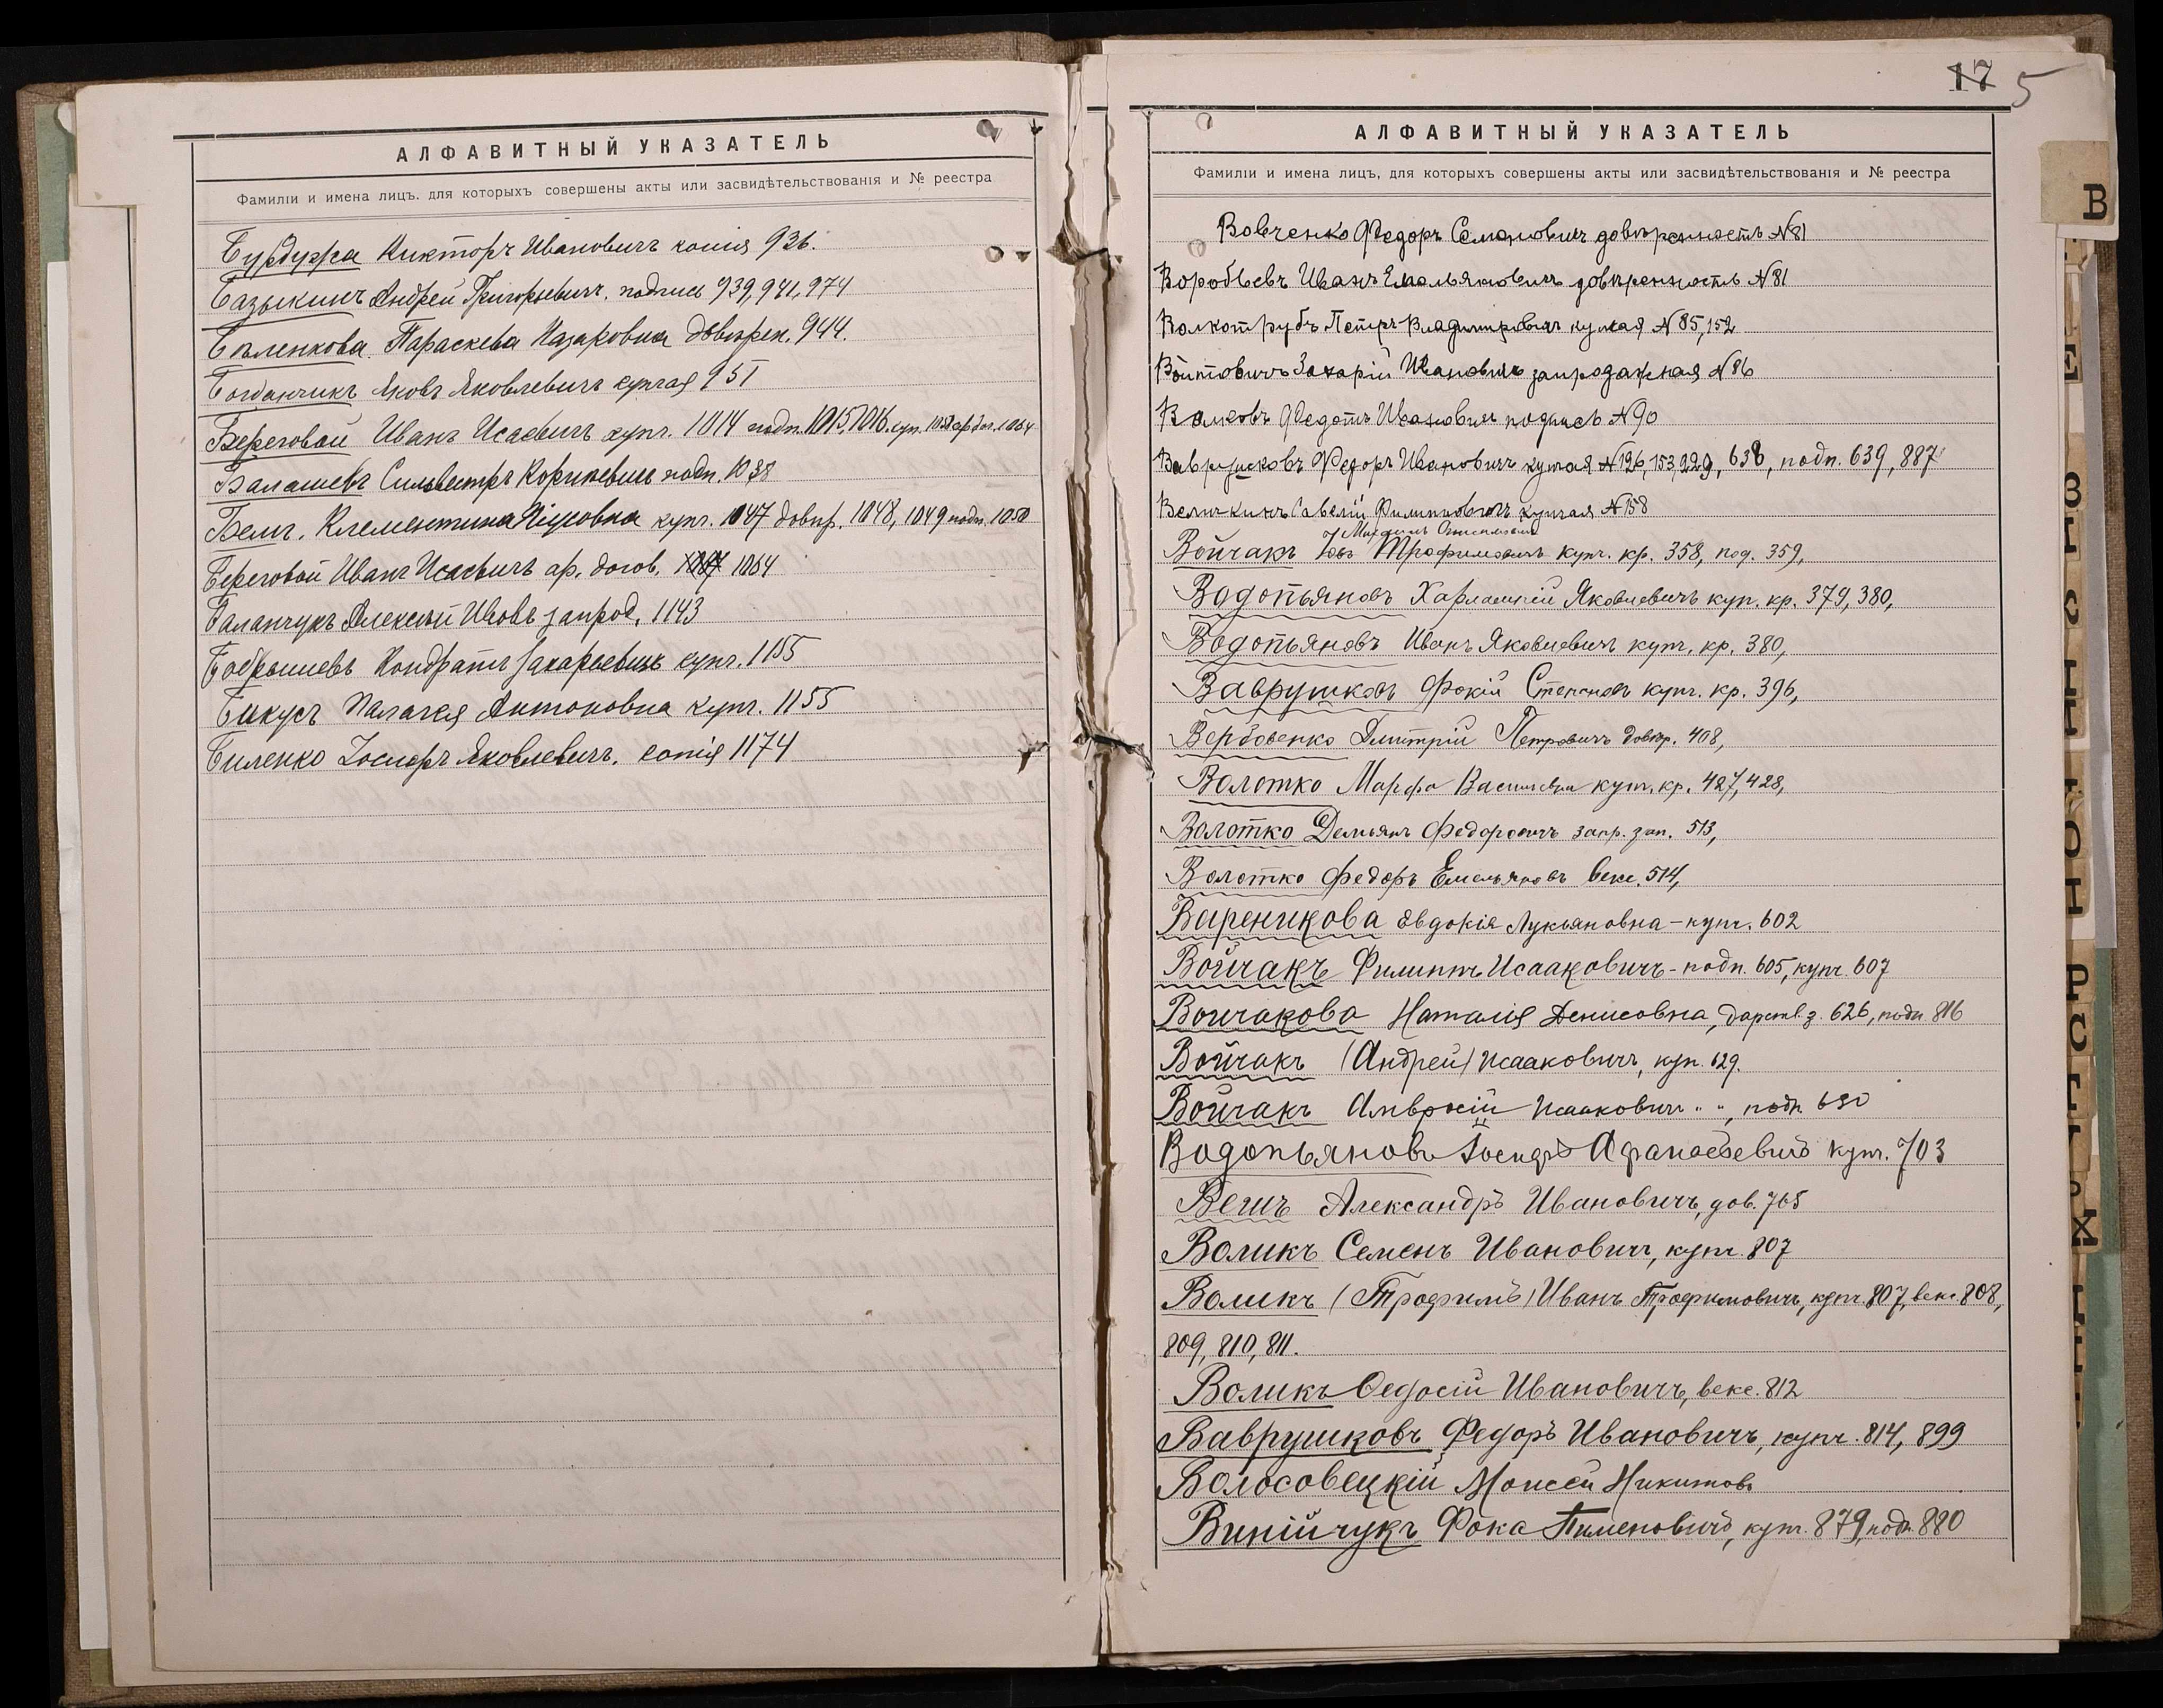 АЛФАВИТНЫЙ УКАЗАТЕЛЬ
Фамиліи и имена лицъ, для которыхъ совершены акты или засвидѣтельствованія и № реестра
Викторъ Ивановичъ копія 936.
Базыкинъ Андрей Григорьевичъ. подпись 939, 941, 974
Бѣленкова Параскева Назаровна довѣрен. 944.
Богданчикъ Яковъ Яковлевичъ купчая 951
Береговой Иванъ Исаевичъ купч. 1014 подп. 1015, 1016.
Балашевъ Сильвестръ Корнеевичъ подп. 1038
Белъ. Клементина купч. 1047 довѣр. 1048, 1049 подп. 1050
Береговой Иванъ Исаевичъ ар. догов. 1064
Баланчукъ Алексѣй Ивовъ запрод. 1143
Бобрышевъ Кондратъ Захарьевичъ купч. 1155
Бикусъ Палагея Антоновна купч. 1155
Биленко Іосифъ Яковлевичъ. копія 1174
17 5
АЛФАВИТНЫЙ УКАЗАТЕЛЬ
Фамиліи и имена лицъ, для которыхъ совершены акты или засвидѣтельствованія и № реестра
Вовченко Федоръ Семеновичъ довѣренность №81
Воробьевъ Иванъ Емельяновичъ довѣренность №81
Волкотрубъ Петръ Владимировичъ купчая №85, 152
Войтовичъ Захарій Ивановичъ запродажная №86
Волковъ Федотъ Ивановичъ подпись №90
Ваврушковъ Федоръ Ивановичъ купчая №126, 153, 229, 638, подп. 639, 887
Величкинъ Савелій Филипповичъ купчая №158
Войчакъ Трофимовичъ купч. кр. 358, под. 359,
Водопьяновъ Харлампій Яковлевичъ куп. кр. 379, 380,
Водопьяновъ Иванъ Яковлевичъ купч. кр. 380,
Ваврушковъ Фокій Степановъ купч. кр. 396,
Вербовенко Дмитрій Петровичъ довѣр. 408,
Волотко Марфа Васильевна купч. кр. 427, 428,
Волотко Демьянъ Федоровичъ запр. зап. 513,
Волотко Федоръ Емельяновъ векс. 514,
Вареникова Евдокія Лукьяновна – купч. 602
Войчакъ Филиппъ Исааковичъ – подп. 605, купч. 607
Войчакова Наталія Денисовна, дарств. з. 626, подп. 816
Войчакъ (Андрей) Исааковичъ, куп. 629.
Войчакъ Амвросій Исааковичъ " ", подп. 630
Водопьяновъ Іосифъ Афанасьевичъ купч. 703
Вегнъ Александръ Ивановичъ, дов. 765
Воликъ Семенъ Ивановичъ, купч. 807
Воликъ (Трофимъ) Иванъ Трофимовичъ, купч. 807, векс. 808,
809, 810, 811.
Воликъ Ѳедосій Ивановичъ, векс. 812
Ваврушковъ Федоръ Ивановичъ, купч. 814, 899
Волосовецкій Моисей Никитовъ
Винійчукъ Фока Пименовичъ, купч. 879, подп. 880
В